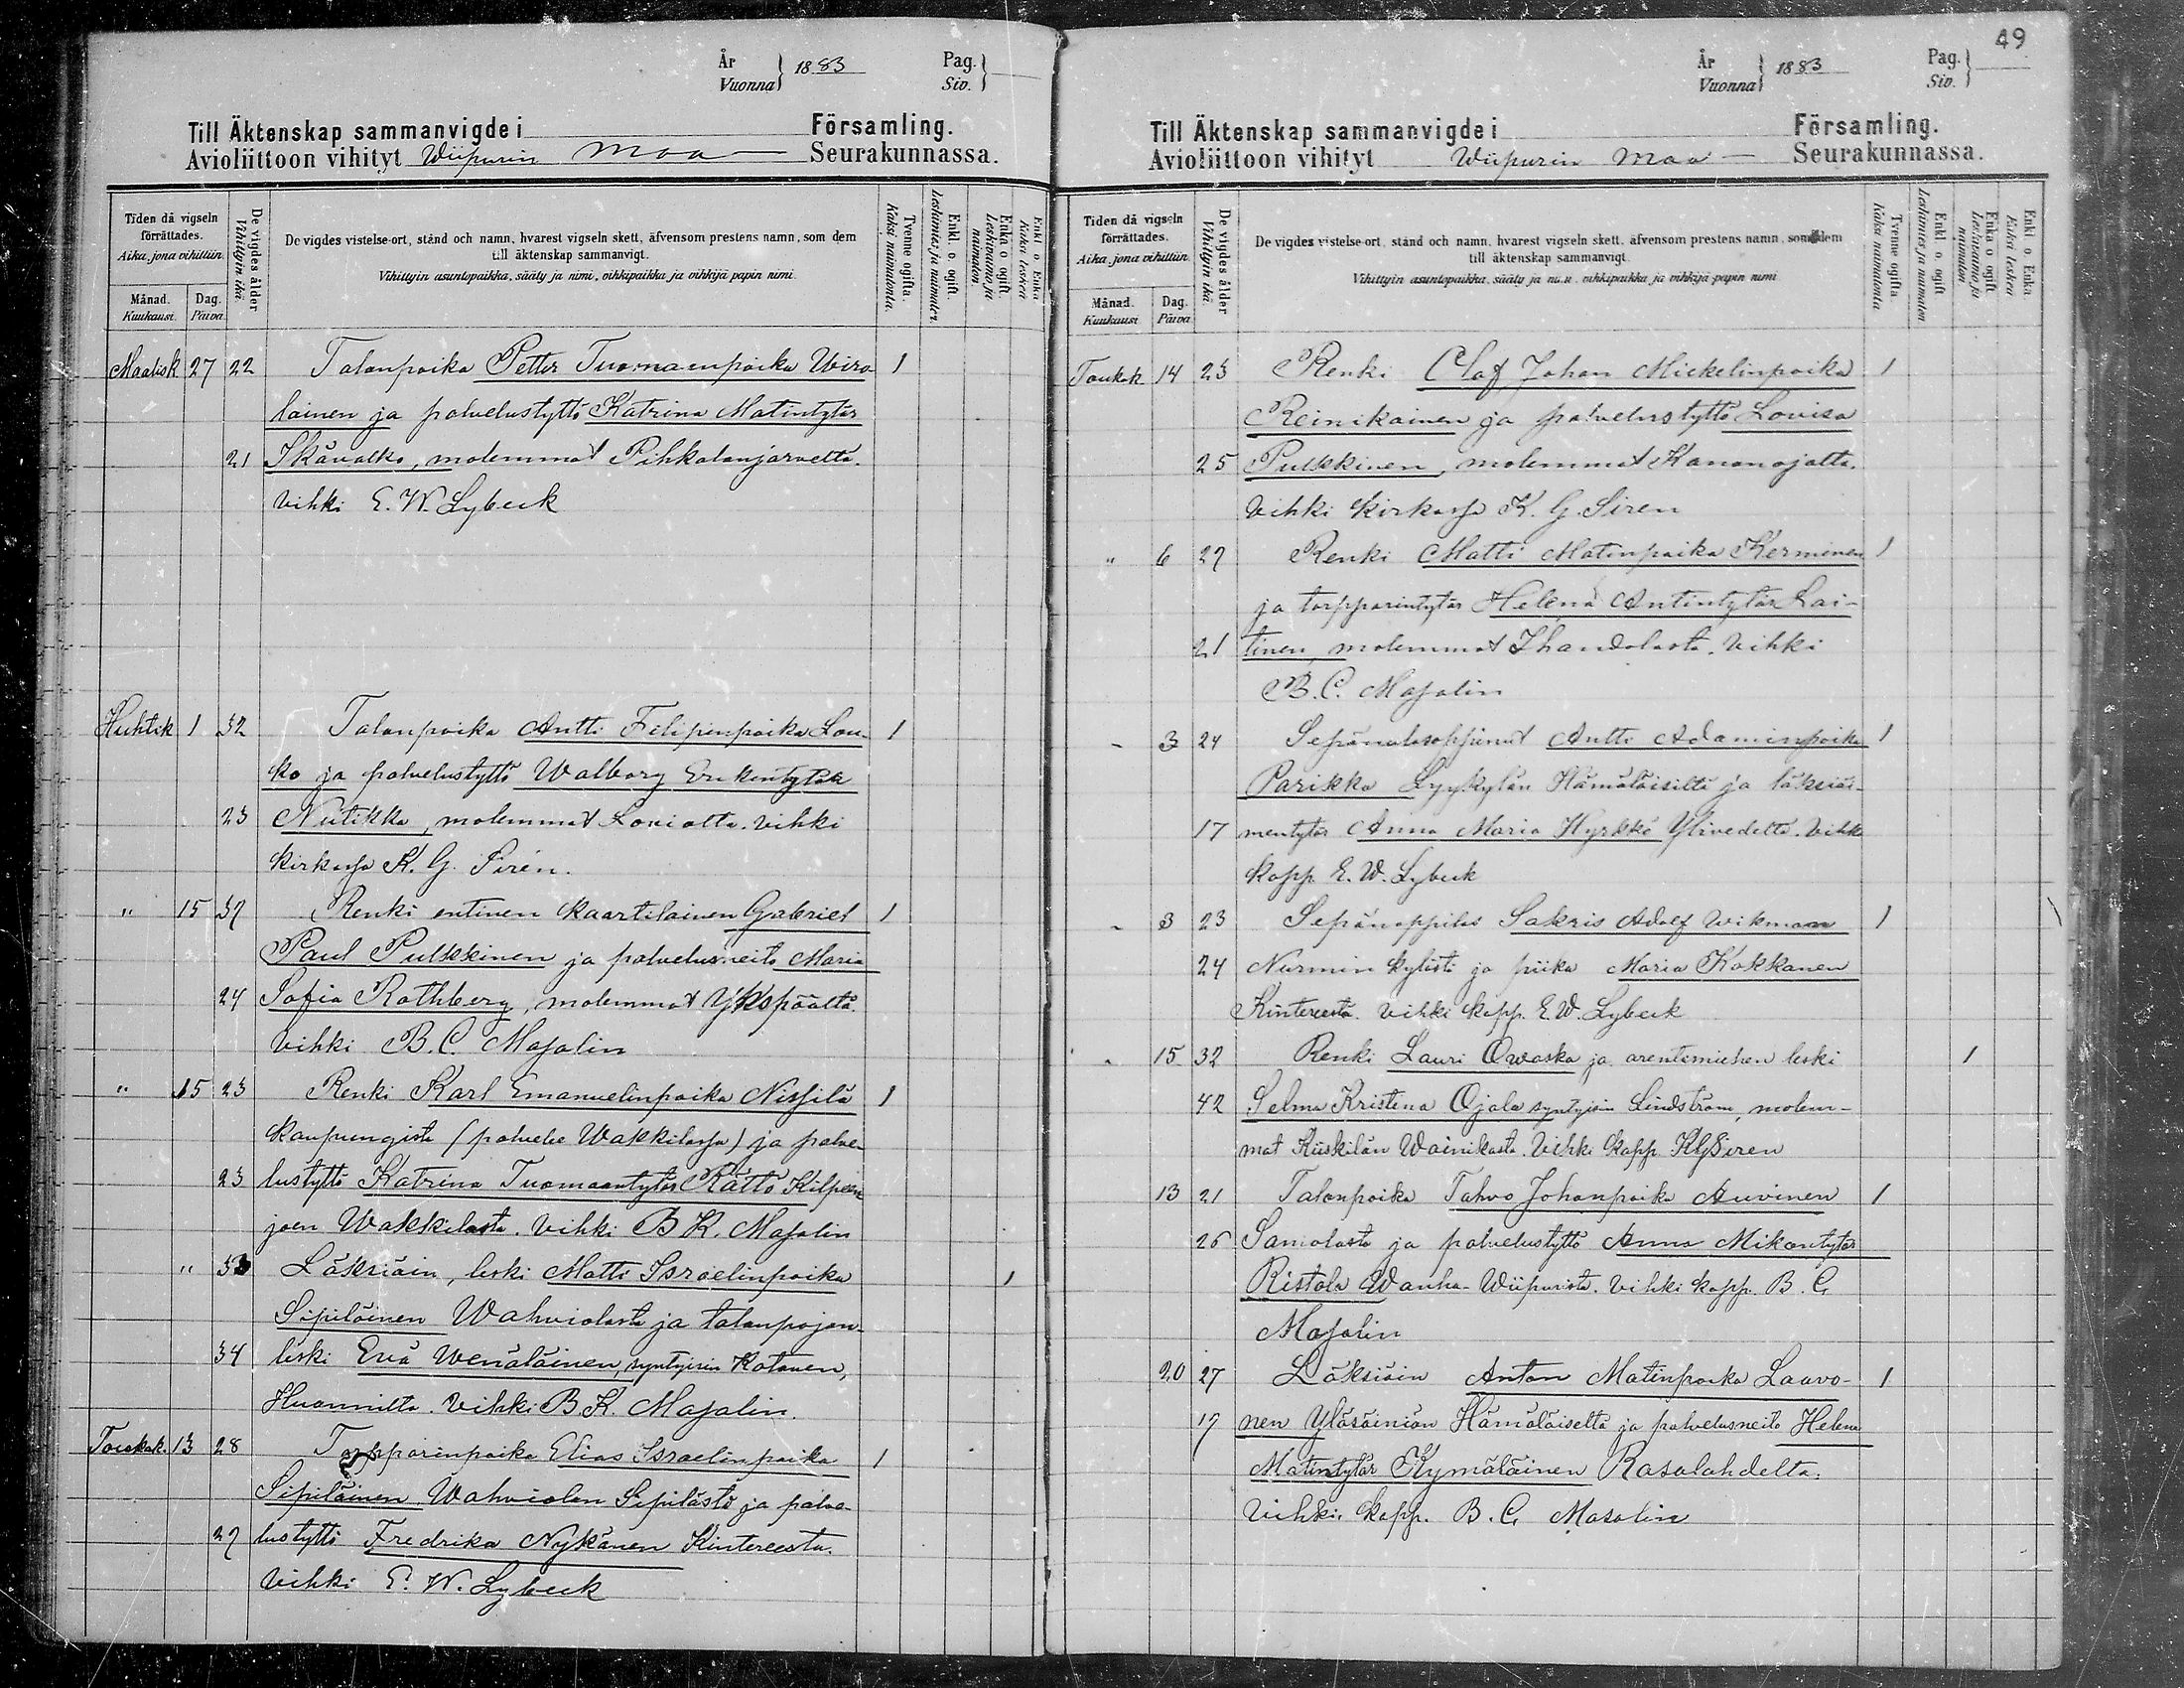 År
Vuonna } 1883
Pag.
Siv. }
Till Äktenskap sammanvigde i Församling.
Avioliittoon vihityt Wiipurin Maa Seurakunnassa.
Tiden då vigseln förrättades.
Aika, jona vihittiin.
Månad.
Kuukausi.
Dag.
Päivä.
De vigdes ålder
Vihittyin ikä.
De vigdes vistelse-ort, stånd och namn, hvarest vigseln skett, äfvensom prestens namn, som dem
till äktenskap sammanvigt.
Vihittyin asuntopaikka, sääty ja nimi, vihkipaikka ja vihkijä papin nimi.
Tvenne ogifta.
Kaksi naimatonta.
Enkl. o. ogift.
Leskimies ja naimaton.
Enka o ogift.
Leskivaimo ja naimaton.
Enkl o. Enka
Kaksi leskeä
Maalisk 27 22 Talonpoika Petter Tuomaanpoika Wiro- 1
lainen ja palvelustyttö Katrina Matintytär
21 Ikävalko, molemmat Pihkalanjärveltä.
vihki E. W. Lybeck
Huhtik 1 32 Talonpoika Antti Filipinpoika Lou- 1
ko ja palvelustyttö Walborg Erikintytär
23 Nutikka, molemmat Loviolta. vihki
kirkossa K. G. Sirén.
" 15 37 Renki entinen kaartilainen Gabriel 1
Paul Pulkkinen ja palvelusneito Maria
24 Sofia Rothberg, molemmat Ykspäältä.
vihki B. C. Masalin
" 15 23 Renki Karl Emanuelinpoika Nissilä 1
kaupungista (palvelee Wakkilassa) ja palve-
23 lustyttö Katrina Tuomaantytär Rättö Kilpeen
joen Wakkilasta. vihki B K. Masalin
" 33 Läksiäin, leski Matti Israelinpoika 1
Sipiläinen Wahviolasta ja talonpojan
34 leski Eva Wenäläinen, syntyisin Kotanen,
Huannilta. vihki B K. Masalin.
Toukok. 13 28 Torpparinpoika Elias Israelinpoika 1
Sipiläinen Wahviolan Sipilästä ja palve-
27 lustyttö Fredrika Nykänen Kintereestä.
vihki E. W. Lybeck
49
År
Vuonna } 1883
Pag.
Siv. }
Till Äktenskap sammanvigde i Församling.
Avioliittoon vihityt Wiipurin Maa Seurakunnassa.
Tiden då vigseln förrättades.
Aika, jona vihittiin.
Månad.
Kuukausi
Dag.
Päivä
De vigdes ålder
Vihittyin ikä.
De vigdes vistelse-ort, stånd och namn, hvarest vigseln skett, äfvensom prestens namn, som dem
till äktenskap sammanvigt.
Vihittyin asuntopaikka, sääty ja nimi, vihkipaikka ja vihkijä papin nimi
Tvenne ogifta
Kaksi naimatonta
Enkl o. ogift
Leskimies ja naimaton
Enka o ogift
Leskivaimo ja naimaton
Enkl o. Enka
Kaksi leskeä
Toukok 14 23 Renki Olof Johan Mickelinpoika 1
Reinikainen ja palvelustyttö Lovisa
25 Pulkkinen, molemmat Kananojalta.
vihki kirkossa K. G. Siren
" 6 27 Renki Matti Matinpoika Kerminen 1
ja torpparintytär Helena Antintytär Lai-
21 tinen, molemmat Ihandolasta. vihki
B. C. Masalin
" 3 24 Sepän Antti Adaminpoika 1
Parikka Lyykylän Hämäläisiltä ja läksiäi-
17 mentytär Anna Maria Hyrkkö Ylivedeltä. vihki
kapp. E. W. Lybeck
" 3 23 Sepänoppilas Sakris Adolf Wikman 1
24 Nurmin kylästä ja piika Maria Kokkanen
Kintereestä. vihki kapp. E. W. Lybeck
" 15 32 Renki Lauri Owaska ja arentimiehen leski 1
42 Selma Kristina Ojala syntyisin Lindström, molem-
mat Kiiskilän Wainikasta. vihki kapp. KGSiren
13 21 Talonpoika Tahvo Johanpoika Auvinen 1
26 Samolasta ja palvelustyttö Anna Mikontytär
Ristola Wanha-Wiipurista. vihki kapp. B. C.
Masalin
20 27 Läksiäin Anton Matinpoika Laavo- 1
17 nen Yläsäiniön Hämäläiseltä ja palvelusneito Helena
Matintytär Kymäläinen Rasalahdelta.
vihki. kapp. B. C. Masalin